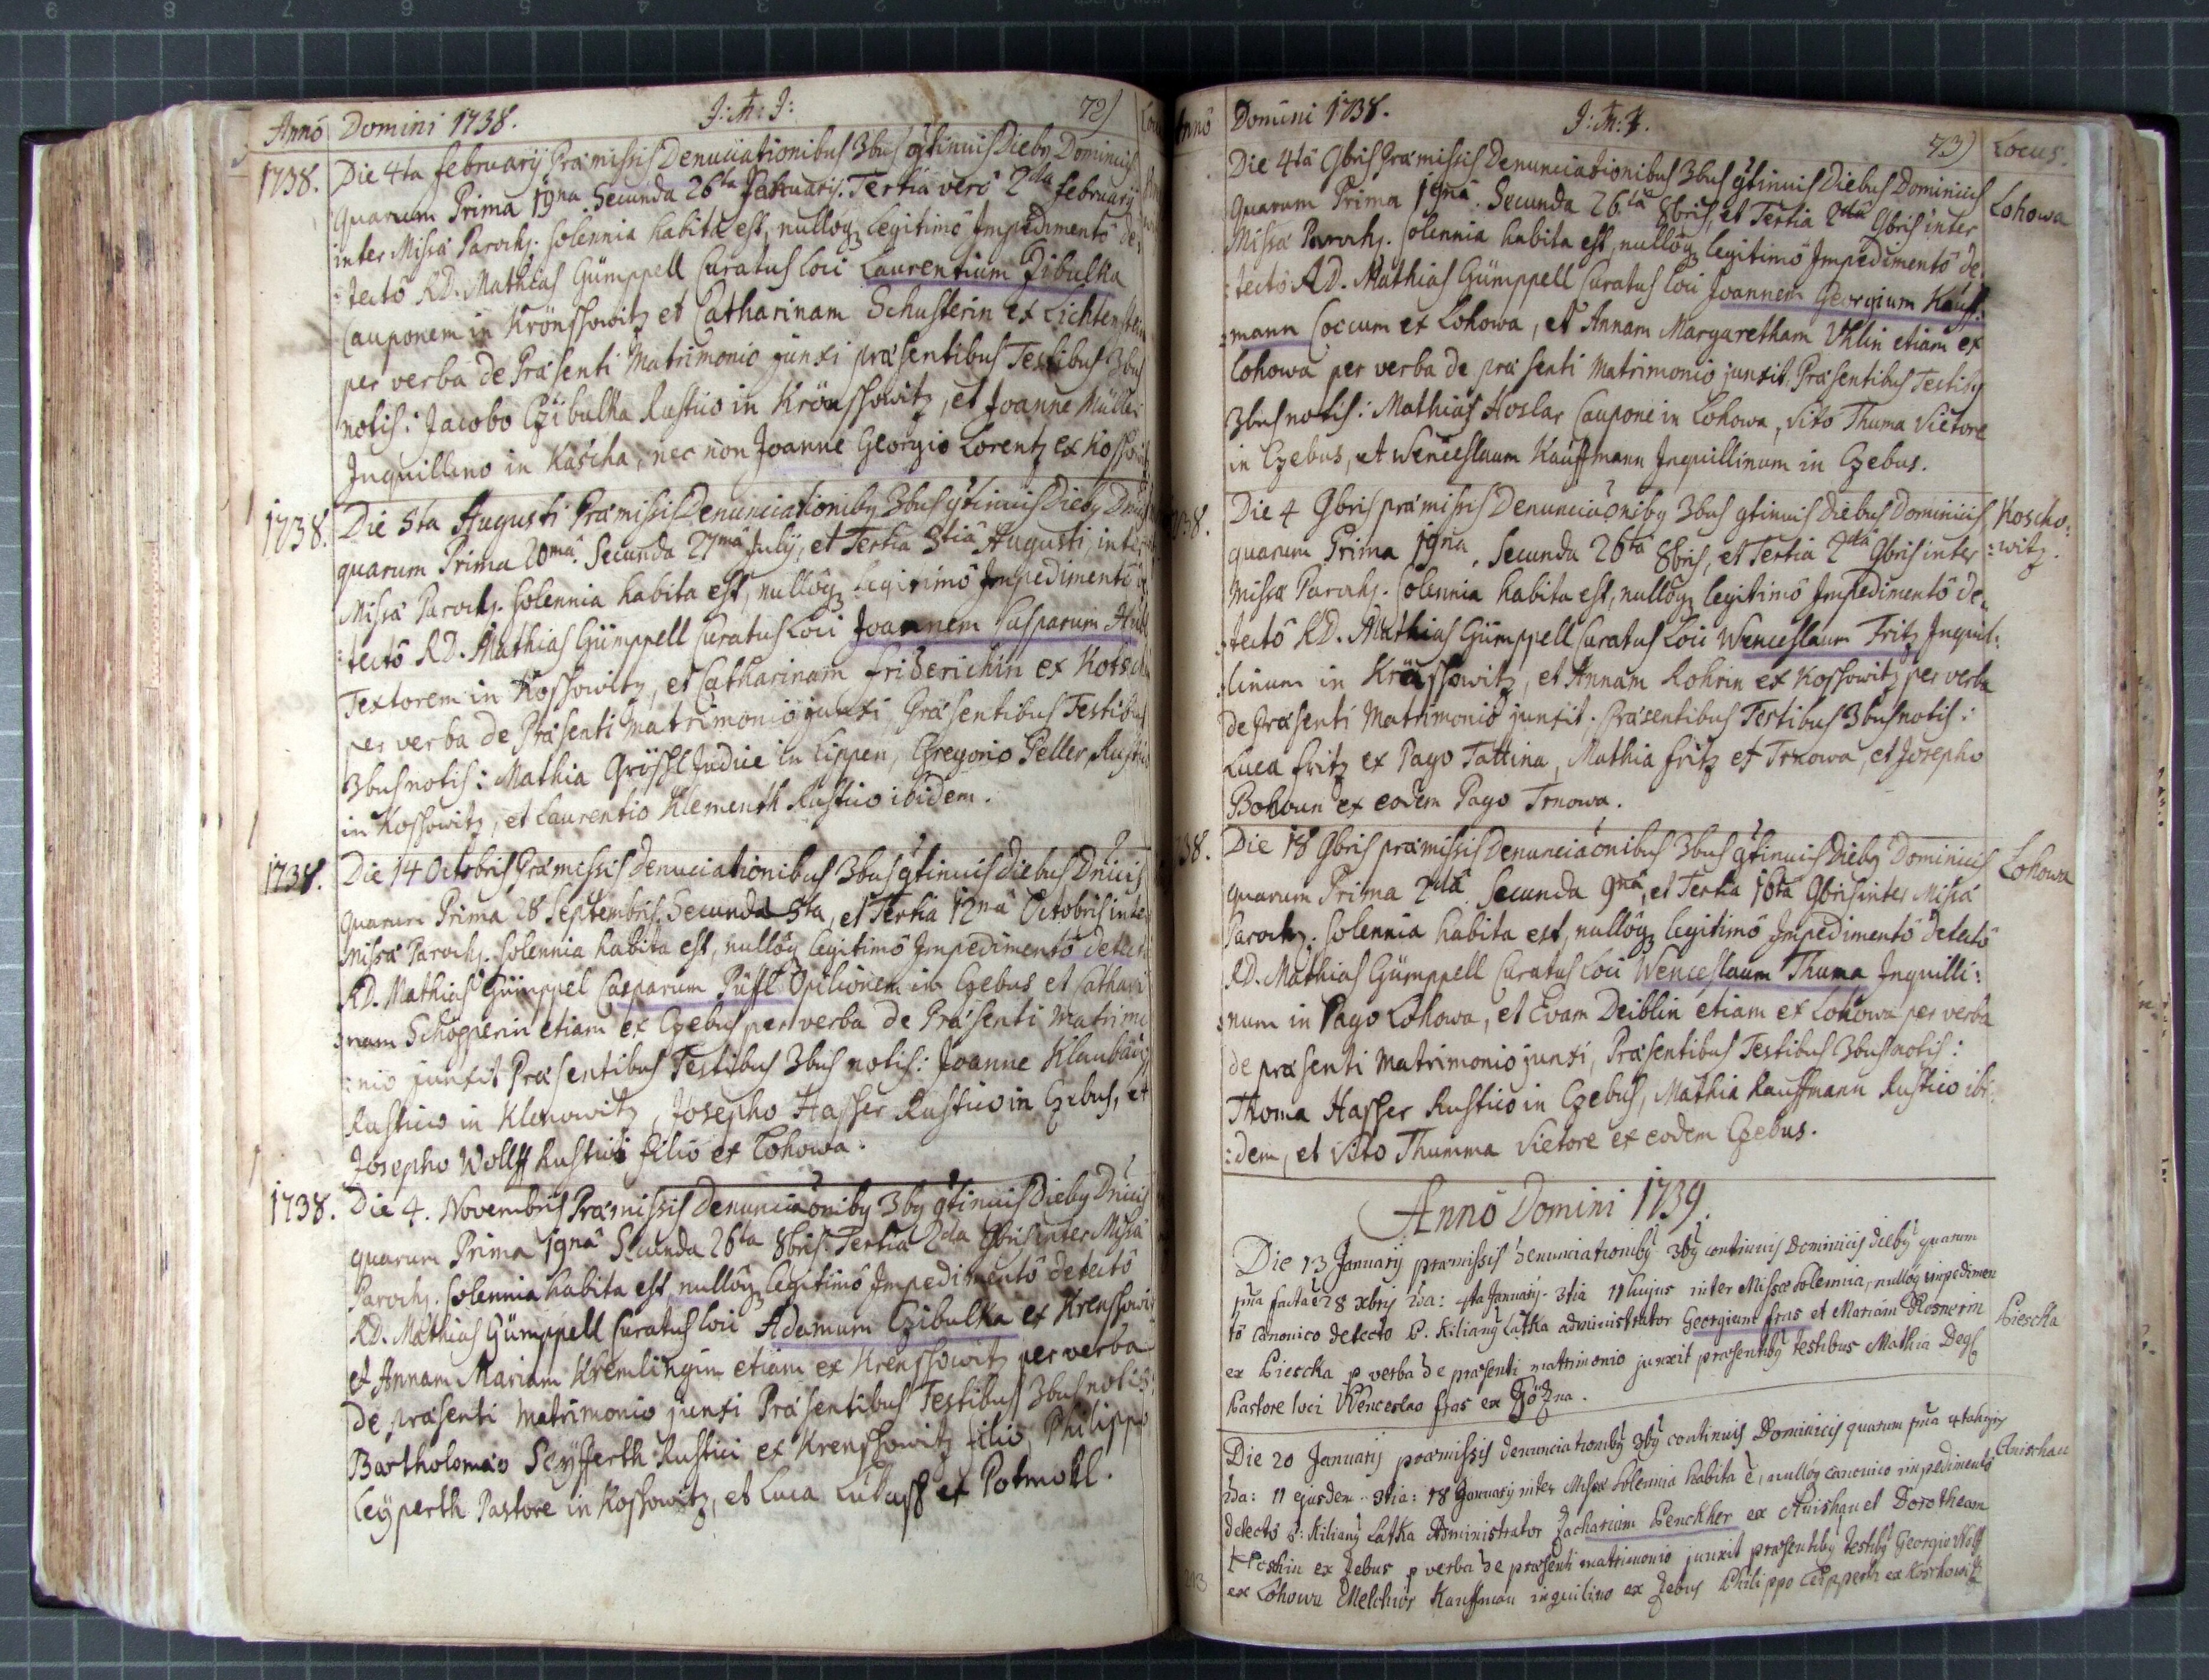 Anno Domini 1738. J: M: J: 72)
1738. Die 4ta february Præmissis Denuciationibus 3bus gtinuis Dieby Dominicis
quarum Prima 19na Secunda 26ta Februarij. Tertia vero 2da february
inter Missæ Paroch. solennia habita est, nulloq legitimô Impedimentô de,
:tectô RD. Mathias Gümppell Curatus loci Laurentium Zibulka
Cauponem in Krönssowitz et Catharinam Schusterin ex Lichtenstein
per verba de Præsenti Matrimonio junxi præsentibus Testibus 3bus
notis: Jacobo Czibulka Rustico in Krönssowitz, et Joanne Müller
Inquillino in Kascha, nec non Joanne Georgio Lorentz ex
1738. Die 5ta Augusti Præmissis Denunciationiby 3bus gtinuis Dieby
quarum Prima 20ma. Secunda 27ma July, et Tertia 3tia Augusti, inter
Missæ Paroch. solennia habita est, nulloq legitimô Impedimentô
:tectô RD. Mathias Gümppell Curatus Loci Joannem Casparum
Textorem in Kossowitz, et Catharinam friderichin ex
per verba de Præsenti Matrimonio junxi, Præsentibus Testibus
3bus notis: Mathia Grössl Judice in Lippen, Gregorio Peller Rustico
in Kossowitz, et Laurentio Klementh Rustico ibidem.
1738. Die 14 Octobris Præmissis Denuciationibus 3bus gtinuis Diebus Dnicis
quarum Prima 28 Septembris, Secunda 5ta, et Tertia 12ma Octobris inter
Missæ Paroch. solennia habita est, nulloq legitimô Impedimentô detectô
RD. Mathias Gümppel Casparum Püffl Opilionem in Czebus et Cathari
:nam Schöpperin etiam ex Czebus per verba de Præsenti Matrimo
:nio junxit Præsentibus Testibus 3bus notis: Joanne
Rustico in Klenowitz, Josepho Hasser Rustico in Czebus, et
Josepho Wolff Rustici filio ex Lohowa.
1738. Die 4. Novembris Præmissis Denunciaoniby 3by gtinuis Dieby Dnicis
quarum Prima 19na Secunda 26ta 8bris. Tertia 2da 9bris inter Missæ
Paroch. solennia habita est, nulloq legitimô Impedimentô detectô
RD. Mathias Gümppell Curatus loci Adamum Czibulka ex Krenssowitz
et Annam Mariam Kremlingin etiam ex Krenssowitz per verba
de præsenti Matrimonio junxi Præsentibus Testibus 3bus notis:
Bartholomæo Seÿfferth Rustici ex Krenssowitz filio, Philippo
Leÿperth Pastore in Kossowitz, et Luca Lukass ex Potmokl.
Anno Domini 1738. J: M: J. 73) Locus.
Die 4ta 9bris Præmissis Denunciationibus 3bus gtinuis Diebus Dominicis Lohowa
quarum Prima 19na. Secunda 26ta 8bris, et Tertia 2da 9bris inter
Missæ Paroch. solennia habita est, nulloq legitimô Impedimentô de,
:tectô RD. Mathias Gümppell Curatus loci Joannem Georgium Kauff:
:mann Coccum ex Lohowa, et Annam Margaretham Uhlin etiam ex
Lohowa per verba de præsenti Matrimonio junxit Præsentibus Testiby
3bus notis: Mathias Hoslar Caupone in Lohowa, Vito Thuma Vietore
in Czebus, et Wenceslaum Kauffmann Inquillinum in Czebus.
1738. Die 4 9bris præmissis Denunciaoniby 3bus gtinuis Diebus Dominicis Koscho:
quarum Prima 19na. Secunda 26ta 8bris, et Tertia 2da 9bris inter :witz.
Missæ Paroch. solennia habita est, nulloq legitimô Impedimentô de,
:tectô RD. Mathias Gümppell Curatus loci Wenceslaum Fritz Inquil:
:linum in Krässowitz, et Annam Rohrin ex Kossowitz per verba
de Præsenti Matrimonio junxit. Præsentibus Testibus 3bus notis:
Luca fritz ex Pago Tattina, Mathia fritz ex Trnowa, et Josepho
Bohoun ex eodem Pago Trnowa.
1738. Die 18 9bris præmissis Denunciaonibus 3bus gtinuis Dieby Dominicis Lohowa
quarum Prima 2da. Secunda 9na, et Tertia 16ta 9bris inter Missæ
Paroch. solennia habita est, nulloq legitimô Impedimentô detectô
RD. Mathias Gümppell Curatus loci Wenceslaum Thuma Inquilli:
:num in Pago Lohowa, et Evam Deiblin etiam ex Lohowa per verba
de præsenti Matrimonio junxi, Præsentibus Testibus 3bus notis:
Thoma Hasser Rustico in Czebus, Mathia Kauffmann Rustico ibi:
:dem, et Vito Thumma Vietore ex eodem Czebus.
Anno Domini 1739.
Die 13 January præmissis Denunciationiby 3by continuis Dominicis dieby quarum
pma facta e 28 xbris 2da: 4ta January. 3tia 11 hujus inter Missæ solemnia, nulloq impedimen
to canonico detecto P. Kiliany Latka administrator Georgium fras et Mariam Rosnerin Piescka
ex Piescka p verba de præsenti matrimonio junxit præsentiby testibus Mathia Degl
Pastore loci Wenceslao fras ex
Die 20 January præmissis denunciationiby 3by continuis Dominicis quarum pma 4ta hujus Anischau
2da: 11 ejusdem 3tia: 18 January inter Missæ Solemnia habita e, nulloq canonico impedimento
detecto P: Kiliany Latka Administrator Zacharium Penckher ex Anishau et Dorotheam
ex Zebus p verba de præsenti matrimonio junxit præsentiby testiby Georgio Wolf
ex Lohowa Melchior Kauffman inquilino ex Zebus Philippo Leipperth ex Koschowitz
213